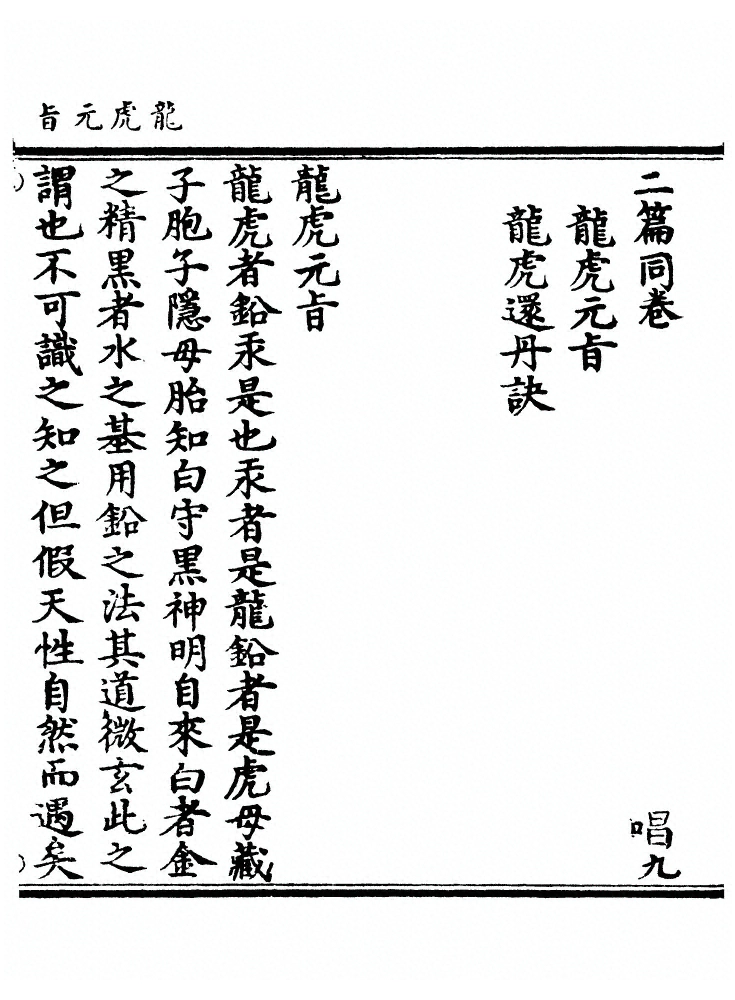 龍虎元旨
二篇同卷　唱九
龍虎元旨
龍虎還丹訣
龍虎元旨
龍虎者鉛汞是也汞者是龍鉛者是虎母藏
子胞子隱母胎知白守黒神明自來白者金
之精黒者水之基用鉛之法其道微玄此之
謂也不可識之知之但假天性自然而遇矣